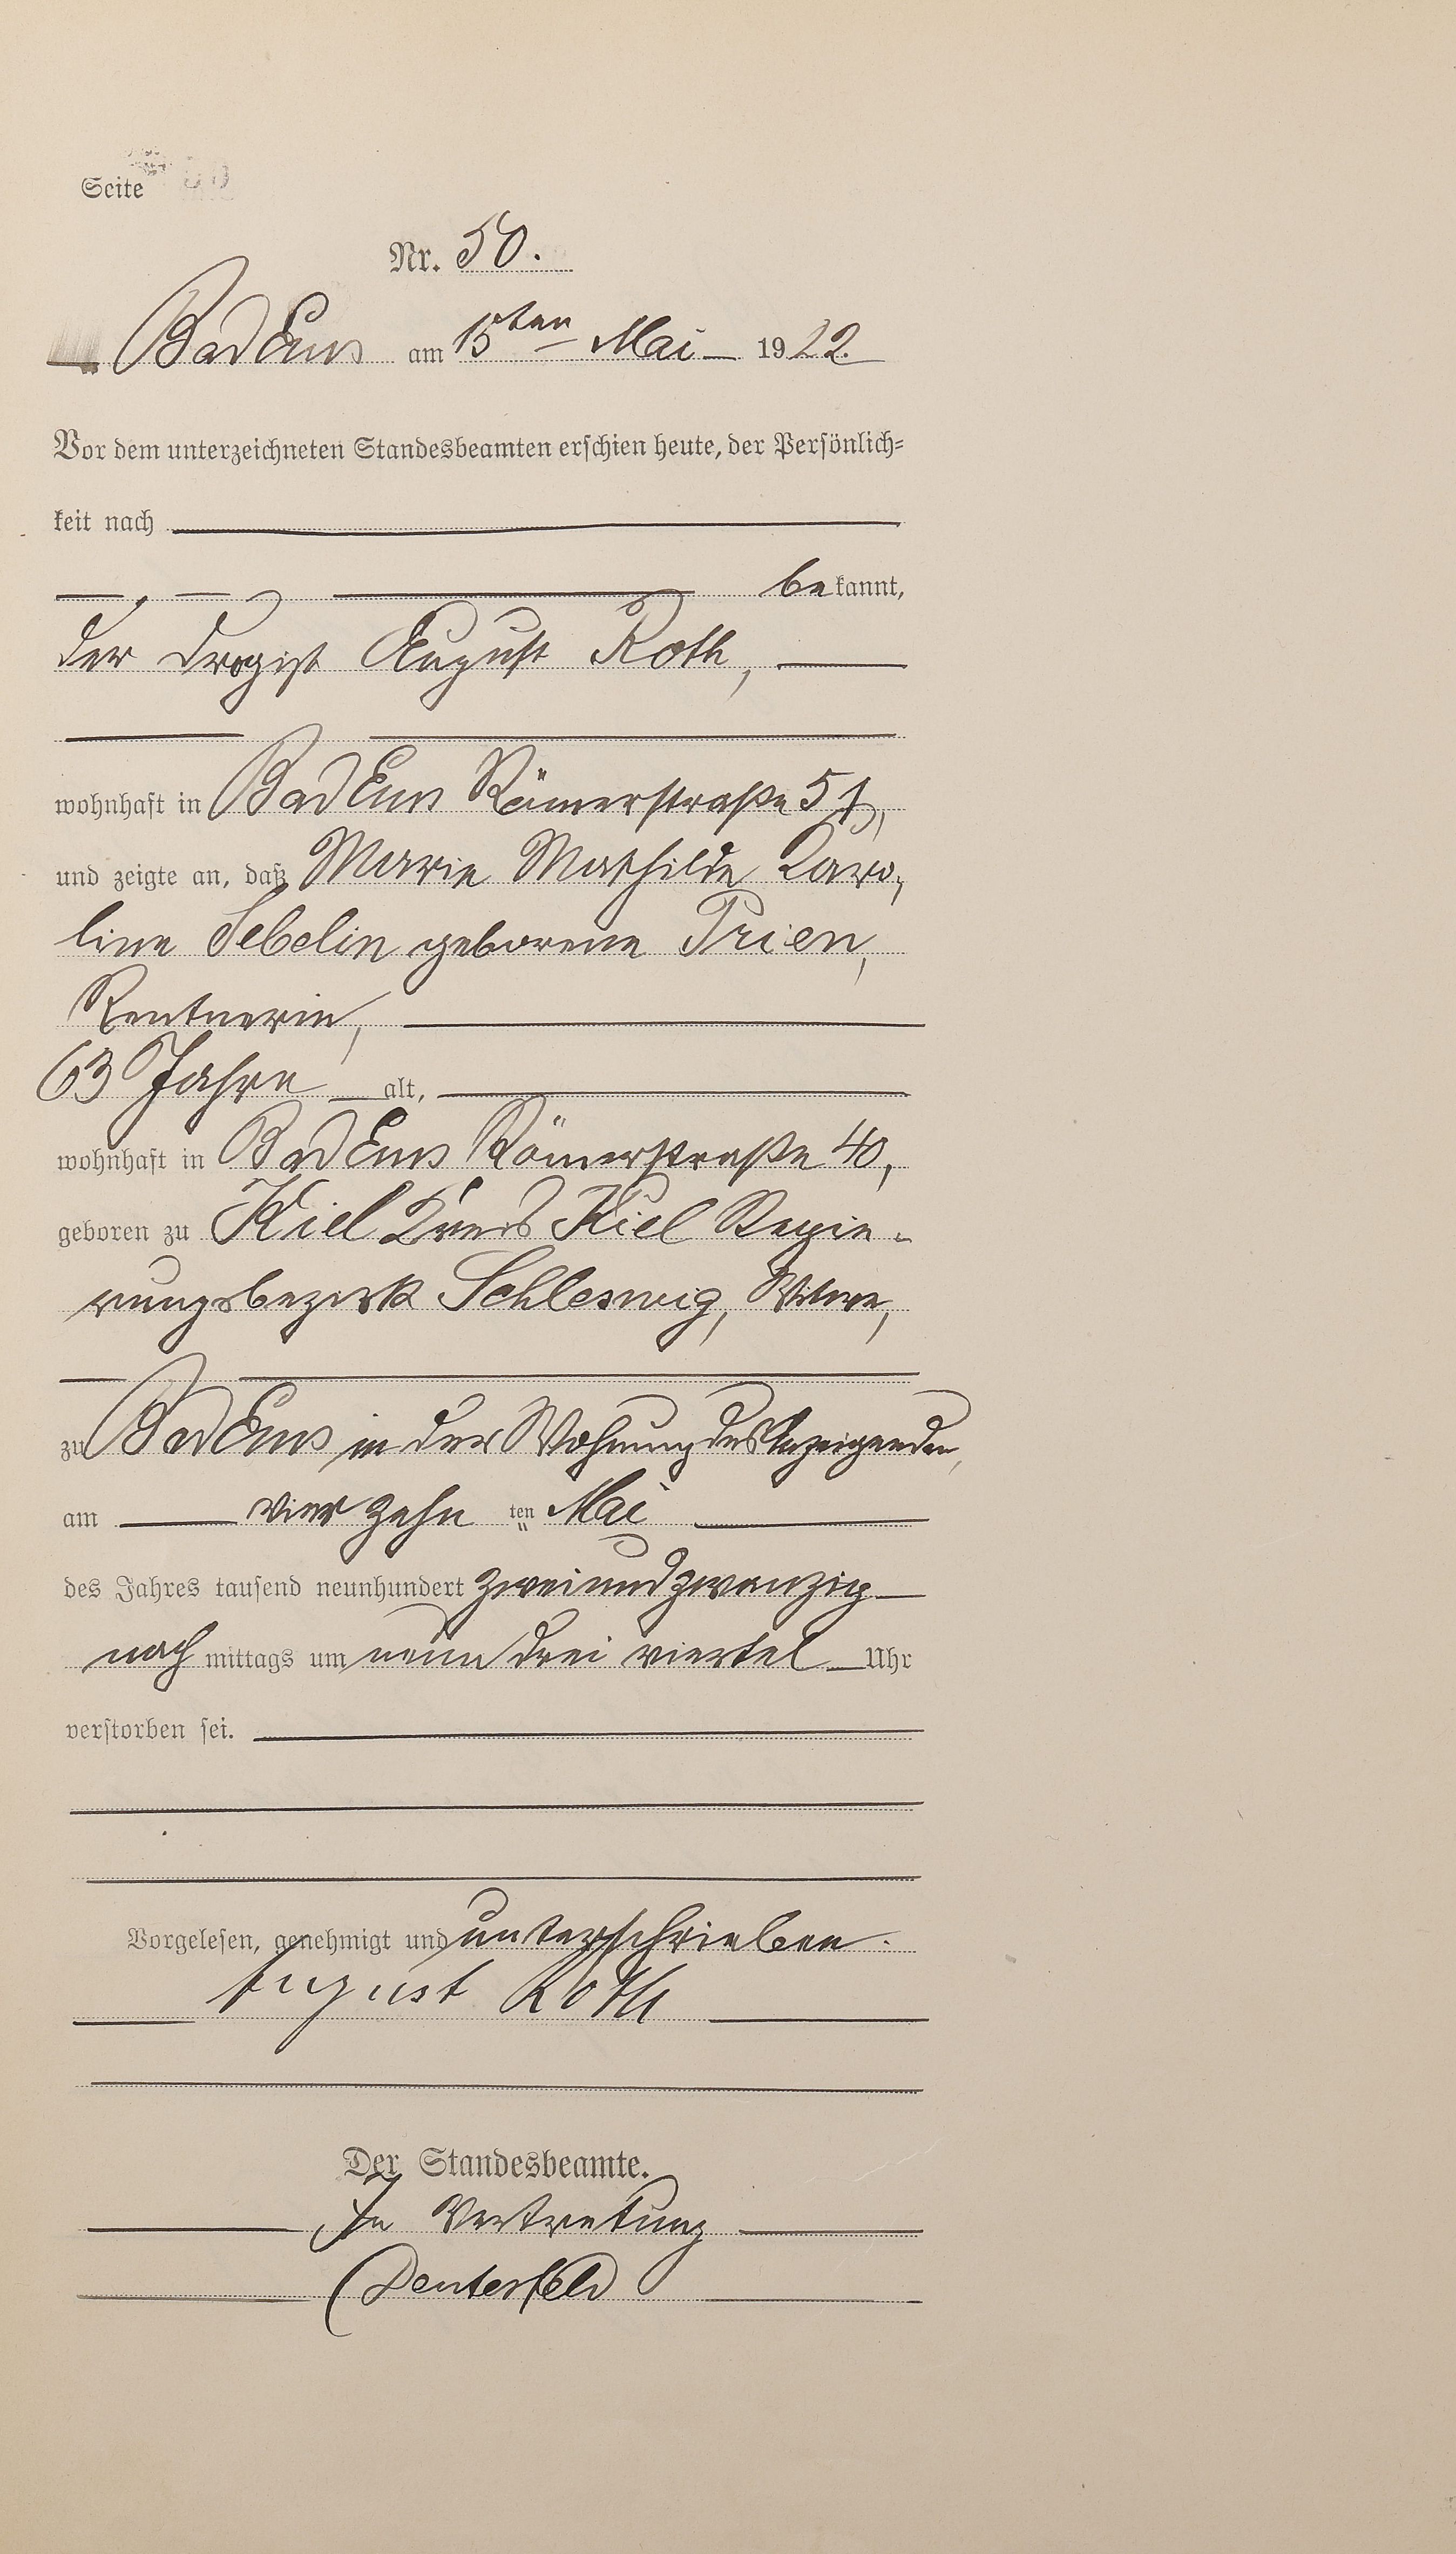 Seite
Nr. 50.
Bad Ems am 15ten Mai 1922.
Vor dem unterzeichneten Standesbeamten erschien heute, der Persönlich-
keit nach
bekannt,
der Drogist August Roth,
wohnhaft in Bad Ems Römerstraße 51,
und zeigte an, daß Marie Mathilde Karo-
line Sebelin geborene Prien,
Rentnerin,
63 Jahre alt,
wohnhaft in Bad Ems Römerstraße 40,
geboren zu Kiel Kreis Kiel Regie-
rungsbezirk Schleswig, Witwe,
zu Bad Ems in der Wohnung des Anzeigenden,
am vierzehn ten Mai
des Jahres tausend neunhundert zweiundzwanzig
nachmittags um neun drei viertel Uhr
verstorben sei.
Vorgelesen, genehmigt und unterschrieben.
August Roth
Der Standesbeamte.
In Vertretung